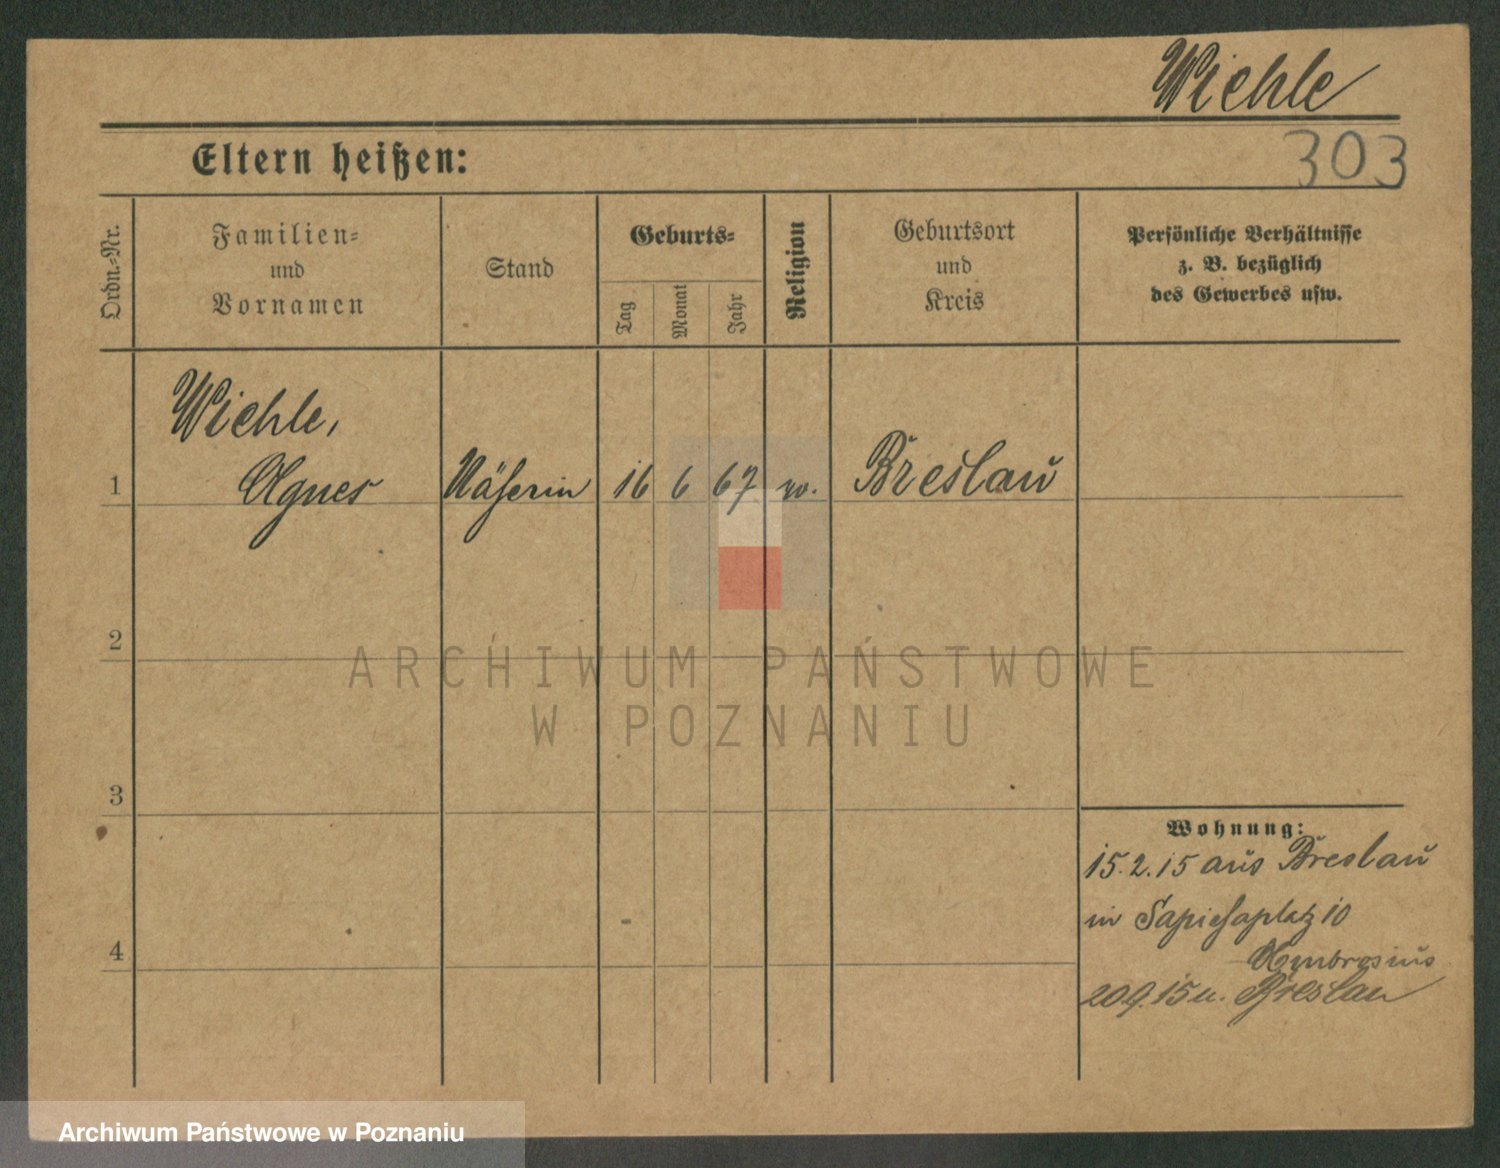 Wiehle
303
Eltern heißen:
Ordn.-Nr.
Familien-
und
Vornamen
Stand
Geburts-
Tag
Monat
Jahr
Religion
Geburtsort
und
Kreis
Persönliche Verhältnisse
z. B. bezüglich
des Gewerbes usw.
Wiehle,
1 Agnes Näherin 16 6 67 Breslau
2
3
4
Wohnung:
15.2.15 aus Breslau
in Sapiehaplatz 10
Ambrosius
20.9.15 n. Breslau
ARCHIWUM PAŃSTWOWE
W POZNANIU
Archiwum Państwowe w Poznaniu